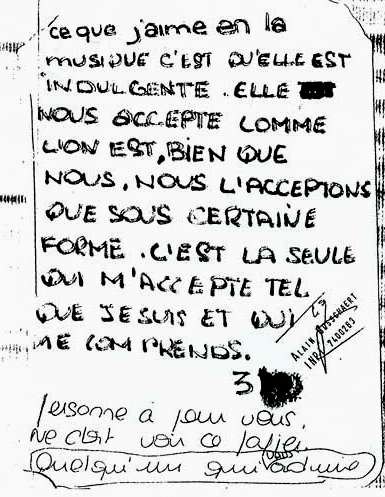 ce que j'aime en la
musique c'est qu'elle est
indulgente. elle
nous accepte comme
l'on est, bien que
nous, nous l'acceptons
que sous certaine
forme. c'est la seule
qui m'accepte tel
que je suis et qui
me comprends.
3
29
ALAIN
INR 7400283
Personne à part vous,
ne doit voir ce papier.
Quelqu'un qui vous